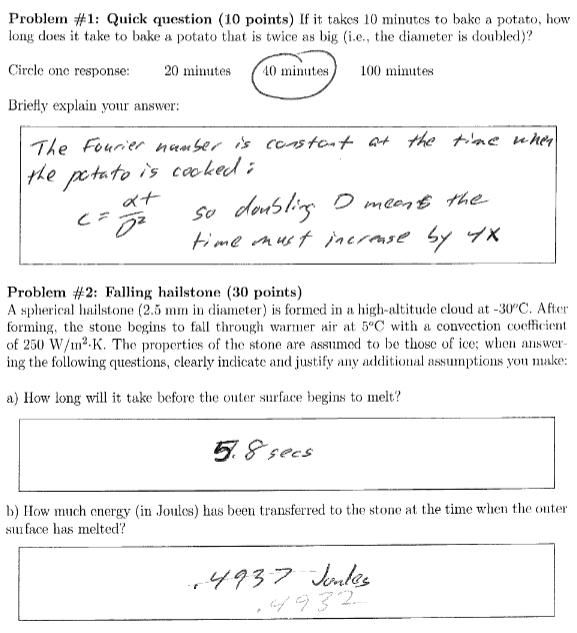 Problem #1: Quick question (10 points) If it takes 10 minutes to bake a potato, how
long does it take to bake a potato that is twice as big (i.e., the diameter is doubled)?
Circle one response: 20 minutes 40 minutes 100 minutes
Briefly explain your answer:
The Fourier number is constant at the time when
the potato is cooked:
c = αt/D² so doubling D means the
time must increase by 4X
Problem #2: Falling hailstone (30 points)
A spherical hailstone (2.5 mm in diameter) is formed in a high-altitude cloud at -30°C. After
forming, the stone begins to fall through warmer air at 5°C with a convection coefficient
of 250 W/m²·K. The properties of the stone are assumed to be those of ice; when answer-
ing the following questions, clearly indicate and justify any additional assumptions you make:
a) How long will it take before the outer surface begins to melt?
5.8 secs
b) How much energy (in Joules) has been transferred to the stone at the time when the outer
surface has melted?
.4937 Joules
.4932